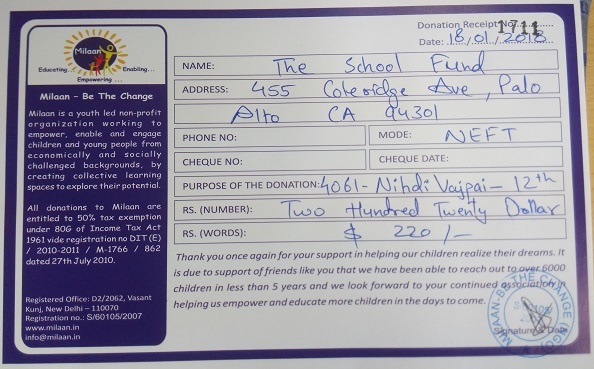 Milaan
Educating... Enabling...
Empowering ...
Milaan – Be The Change
Milaan is a youth led non-profit
organization working to
empower, enable and engage
children and young people from
economically and socially
challenged backgrounds, by
creating collective learning
spaces to explore their potential.
All donations to Milaan are
entitled to 50% tax exemption
under 80G of Income Tax Act
1961 vide registration no DIT (E)
/ 2010-2011 / M-1766 / 862
dated 27th July 2010.
Registered Office: D2/2062, Vasant
Kunj, New Delhi – 110070
Registration no.: S/60105/2007
www.milaan.in
info@milaan.in
Donation Receipt No. 1711
Date: 18/01/2018
NAME: The School Fund
ADDRESS: 455 Coleridge Ave, Palo
Alto CA 94301
PHONE NO: MODE: NEFT
CHEQUE NO: CHEQUE DATE:
PURPOSE OF THE DONATION: 4061- Nihdi Vajpai - 12th
RS. (NUMBER): Two Hundred Twenty Dollar
RS. (WORDS): $ 220 /-
Thank you once again for your support in helping our children realize their dreams. It
is due to support of friends like you that we have been able to reach out to over 6000
children in less than 5 years and we look forward to your continued association in
helping us empower and educate more children in the days to come.
Signature & Date
MILAAN-BE THE CHANGE (NGO)